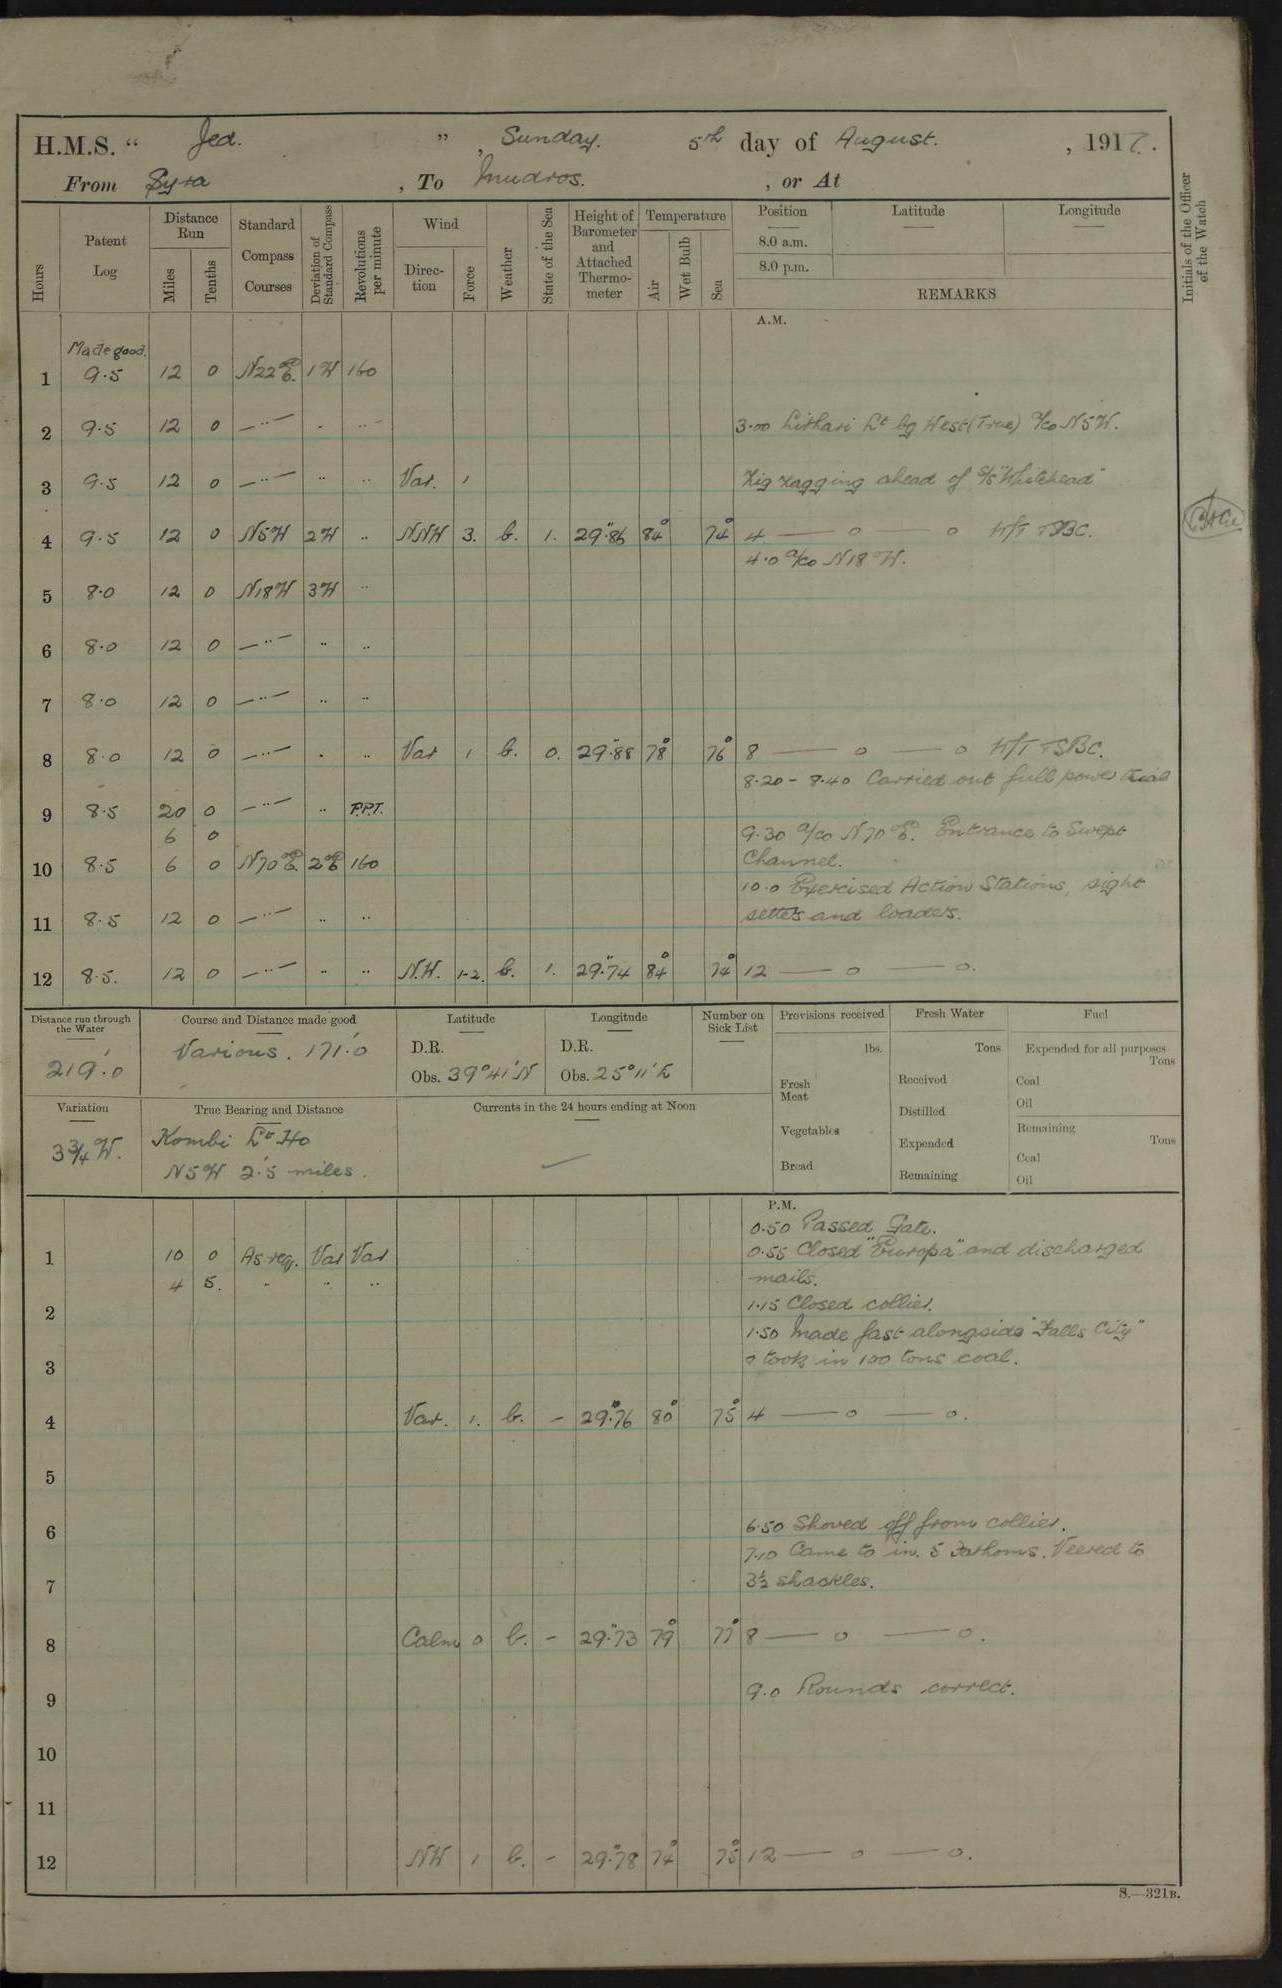 H.M.S. “ Jed. ” , Sunday. 5th day of August. , 1917.
From Syra , To Mudros. , or At
Hours
Patent Log
Distance Run
Miles
Tenths
Standard Compass Courses
Deviation of Standard Compass
Revolutions per minute
Wind
Direction
Force
Weather
State of the Sea
Height of Barometer and Attached Thermometer
Temperature
Air
Wet Bulb
Sea
Position
8.0 a.m.
8.0 p.m.
Latitude
Longitude
REMARKS
Initials of the Officer of the Watch
A.M.
Made good.
1 9.5 12 0 N22°E. 1W 160
2 9.5 12 0 —··— · ··–
3.00 Lithari Lt bg West (True) a/co N5W.
3 9.5 12 0 —··— ·· ·· Var. 1
Zig zagging ahead of S/S "Whitehead"
4 9.5 12 0 N5W 2W ·· NNW 3. b. 1. 29.86 84° 74° 4 — o — o H/T TSBC.
4.0 a/co N18W.
5 8.0 12 0 N18W 3W ··
6 8.0 12 0 —··— ·· ··
7 8.0 12 0 —··— ·· ··
8 8.0 12 0 —··— · ·· Var 1 b. 0. 29.88 78° 76° 8 — o — o H/T TSBC.
8.20 - 8.40 Carried out full power trial
9 8.5 20 0 —··— ·· P.P.T.
6 0
9.30 a/co N70°E. Entrance to Swept
10 8.5 6 0 N70°E. 2°E 160 Channel.
10.0 Exercised Action Stations, sight
11 8.5 12 0 —··— ·· ·· setters and loaders.
12 8.5. 12 0 —··— ·· ·· N.W. 1-2. b. 1. 29.74 84° 74° 12 — o — o.
Distance run through the Water
219.0
Course and Distance made good
Various. 171.0
Latitude
D.R.
Obs. 39°41'N
Longitude
D.R.
Obs. 25°11'E
Number on Sick List
Provisions received
lbs.
Fresh Meat
Vegetables
Bread
Fresh Water
Tons
Received
Distilled
Expended
Remaining
Fuel
Expended for all purposes
Tons
Coal
Oil
Remaining
Tons
Coal
Oil
Variation
3¾ W.
True Bearing and Distance
Kombi Lt Ho
N5W 2.5 miles.
Currents in the 24 hours ending at Noon
P.M.
0.50 Passed Gate.
1 10 0 As req. Var Var 0.55 Closed "Europa" and discharged
4 5. - ·· ·· mails.
2 1.15 Closed collier.
1.50 Made fast alongside "Falls City"
3 & took in 100 tons coal.
4 Var. 1. b. - 29.76 80° 75° 4 — o — o.
5
6 6.50 Shoved off from collier.
7.10 Came to in. 5 Fathoms. Veered to
7 3½ shackles.
8 Calm 0 b. - 29.73 79° 77° 8 — o — o.
9 9.0 Rounds correct.
10
11
12 NW 1 b. - 29.78 74° 75° 12 — o — o.
S.—321B.